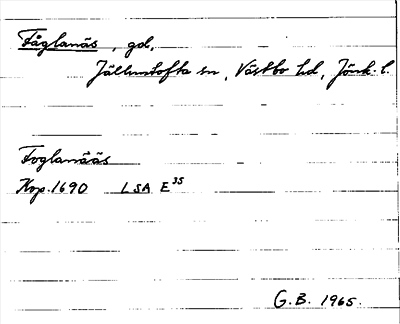 Fåglanäs, gd,
Jälluntofta sn, Västbo hd, Jönk. l.
Foglanääs
Kop. 1690 LSA E³⁵
G.B. 1965.